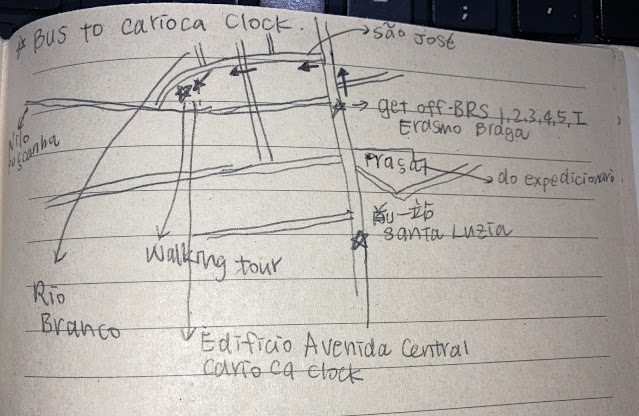 * BUS to carioca clock.
São José
get off-BRS 1,2,3,4,5,I
Erasmo Braga
Nilo
Peçanha
Praça
do expedicionário
前一站
Santa Luzia
Walking tour
Rio
Branco
Edifício Avenida Central
Carioca clock